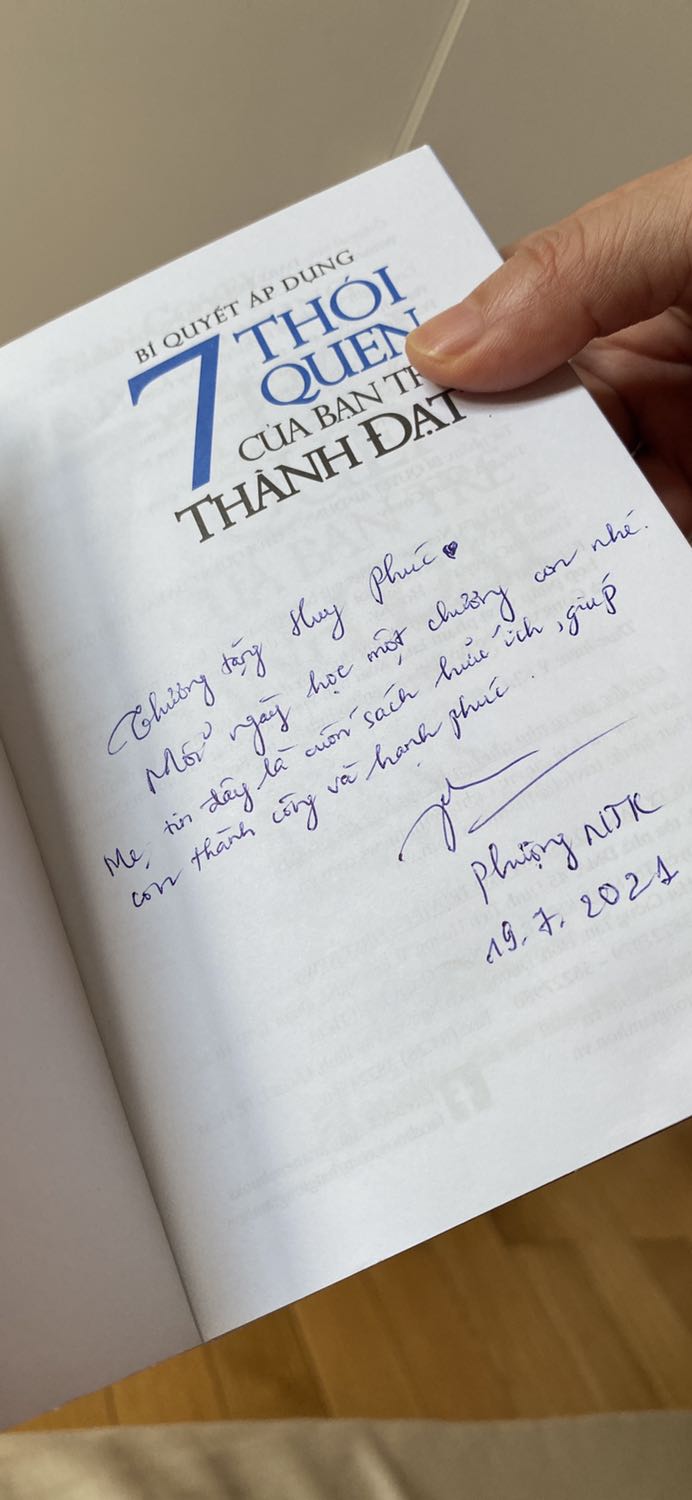 BÍ QUYẾT ÁP DỤNG
7 THÓI
QUEN
CỦA BẠN
THÀNH ĐẠT
Thương tặng Huy Phúc
Mỗi ngày học một chương con nhé.
Mẹ tin đây là cuốn sách hữu ích, giúp
con thành công và hạnh phúc.
Phượng NTK
19.7.2021